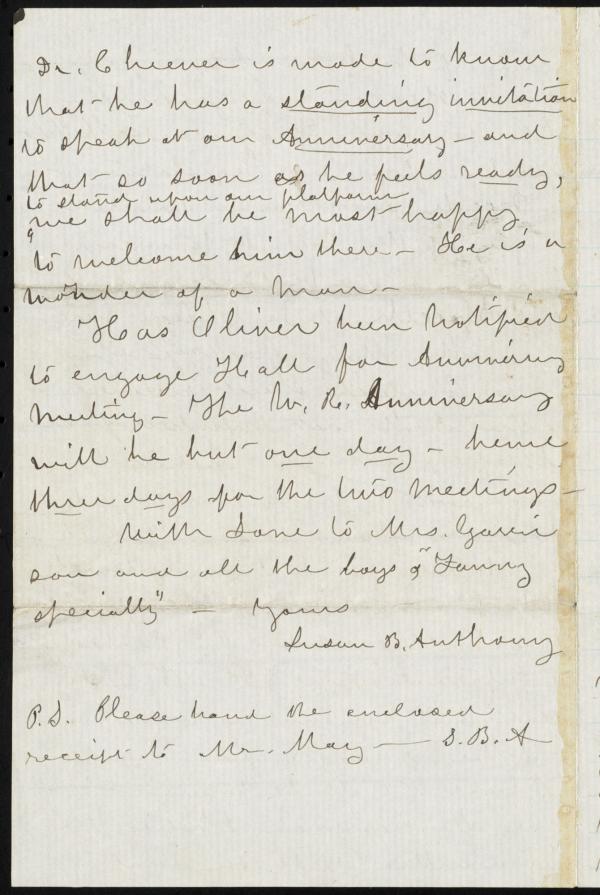 Dr. Cheever is made to know
that he has a standing invitation
to speak at our Anniversary - and
that so soon as he feels ready,
to stand upon our platform
we shall be most happy
to welcome him there - He is a
wonder of a man -
Has Oliver been notified
to engage Hall for Anniversary
Meeting - The W. R. Anniversary
will be but one day - hence
three days for the two meetings -
With Love to Mrs. Garri
son and all the boys & "Fanny
specially" - Yours
Susan B. Anthony
P.S. Please hand the enclosed
receipt to Mr. May - S. B. A